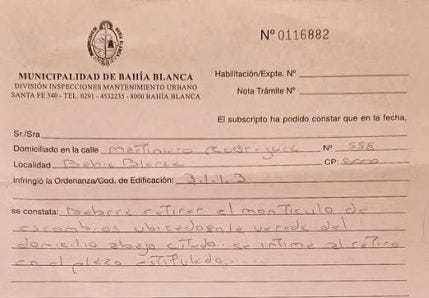 Nº 0116882
MUNICIPALIDAD DE BAHÍA BLANCA
DIVISIÓN INSPECCIONES MANTENIMIENTO URBANO
SANTA FE 340 - TEL. 0291 - 4532235 - 8000 BAHÍA BLANCA
Habilitación/Expte. Nº
Nota Trámite Nº
El subscripto ha podido constar que en la fecha,
Sr./Sra
Domiciliado en la calle Martiniano Rodriguez Nº 558
Localidad Bahia Blanca CP: 8000
infringió la Ordenanza/Cod. de Edificación: 3.1.1.3
se constata: Debera retirar el monticulo de
escombros ubicado en la vereda del
domicilio abajo citado. se intima al retiro
en el plazo